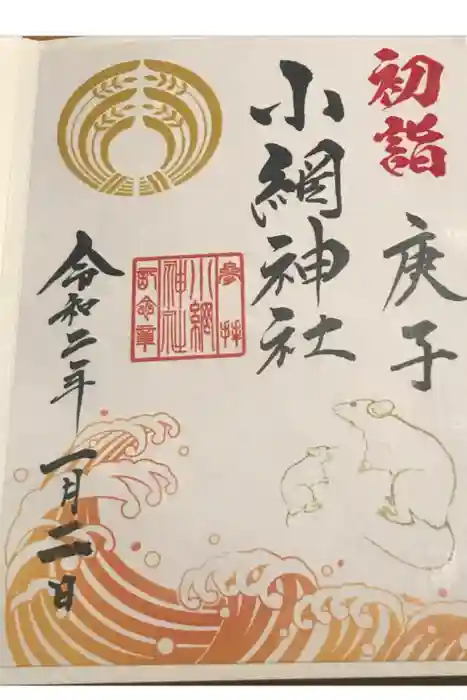 初詣
庚子
小網神社
参拝
小網
神社
記念章
令和二年一月二日